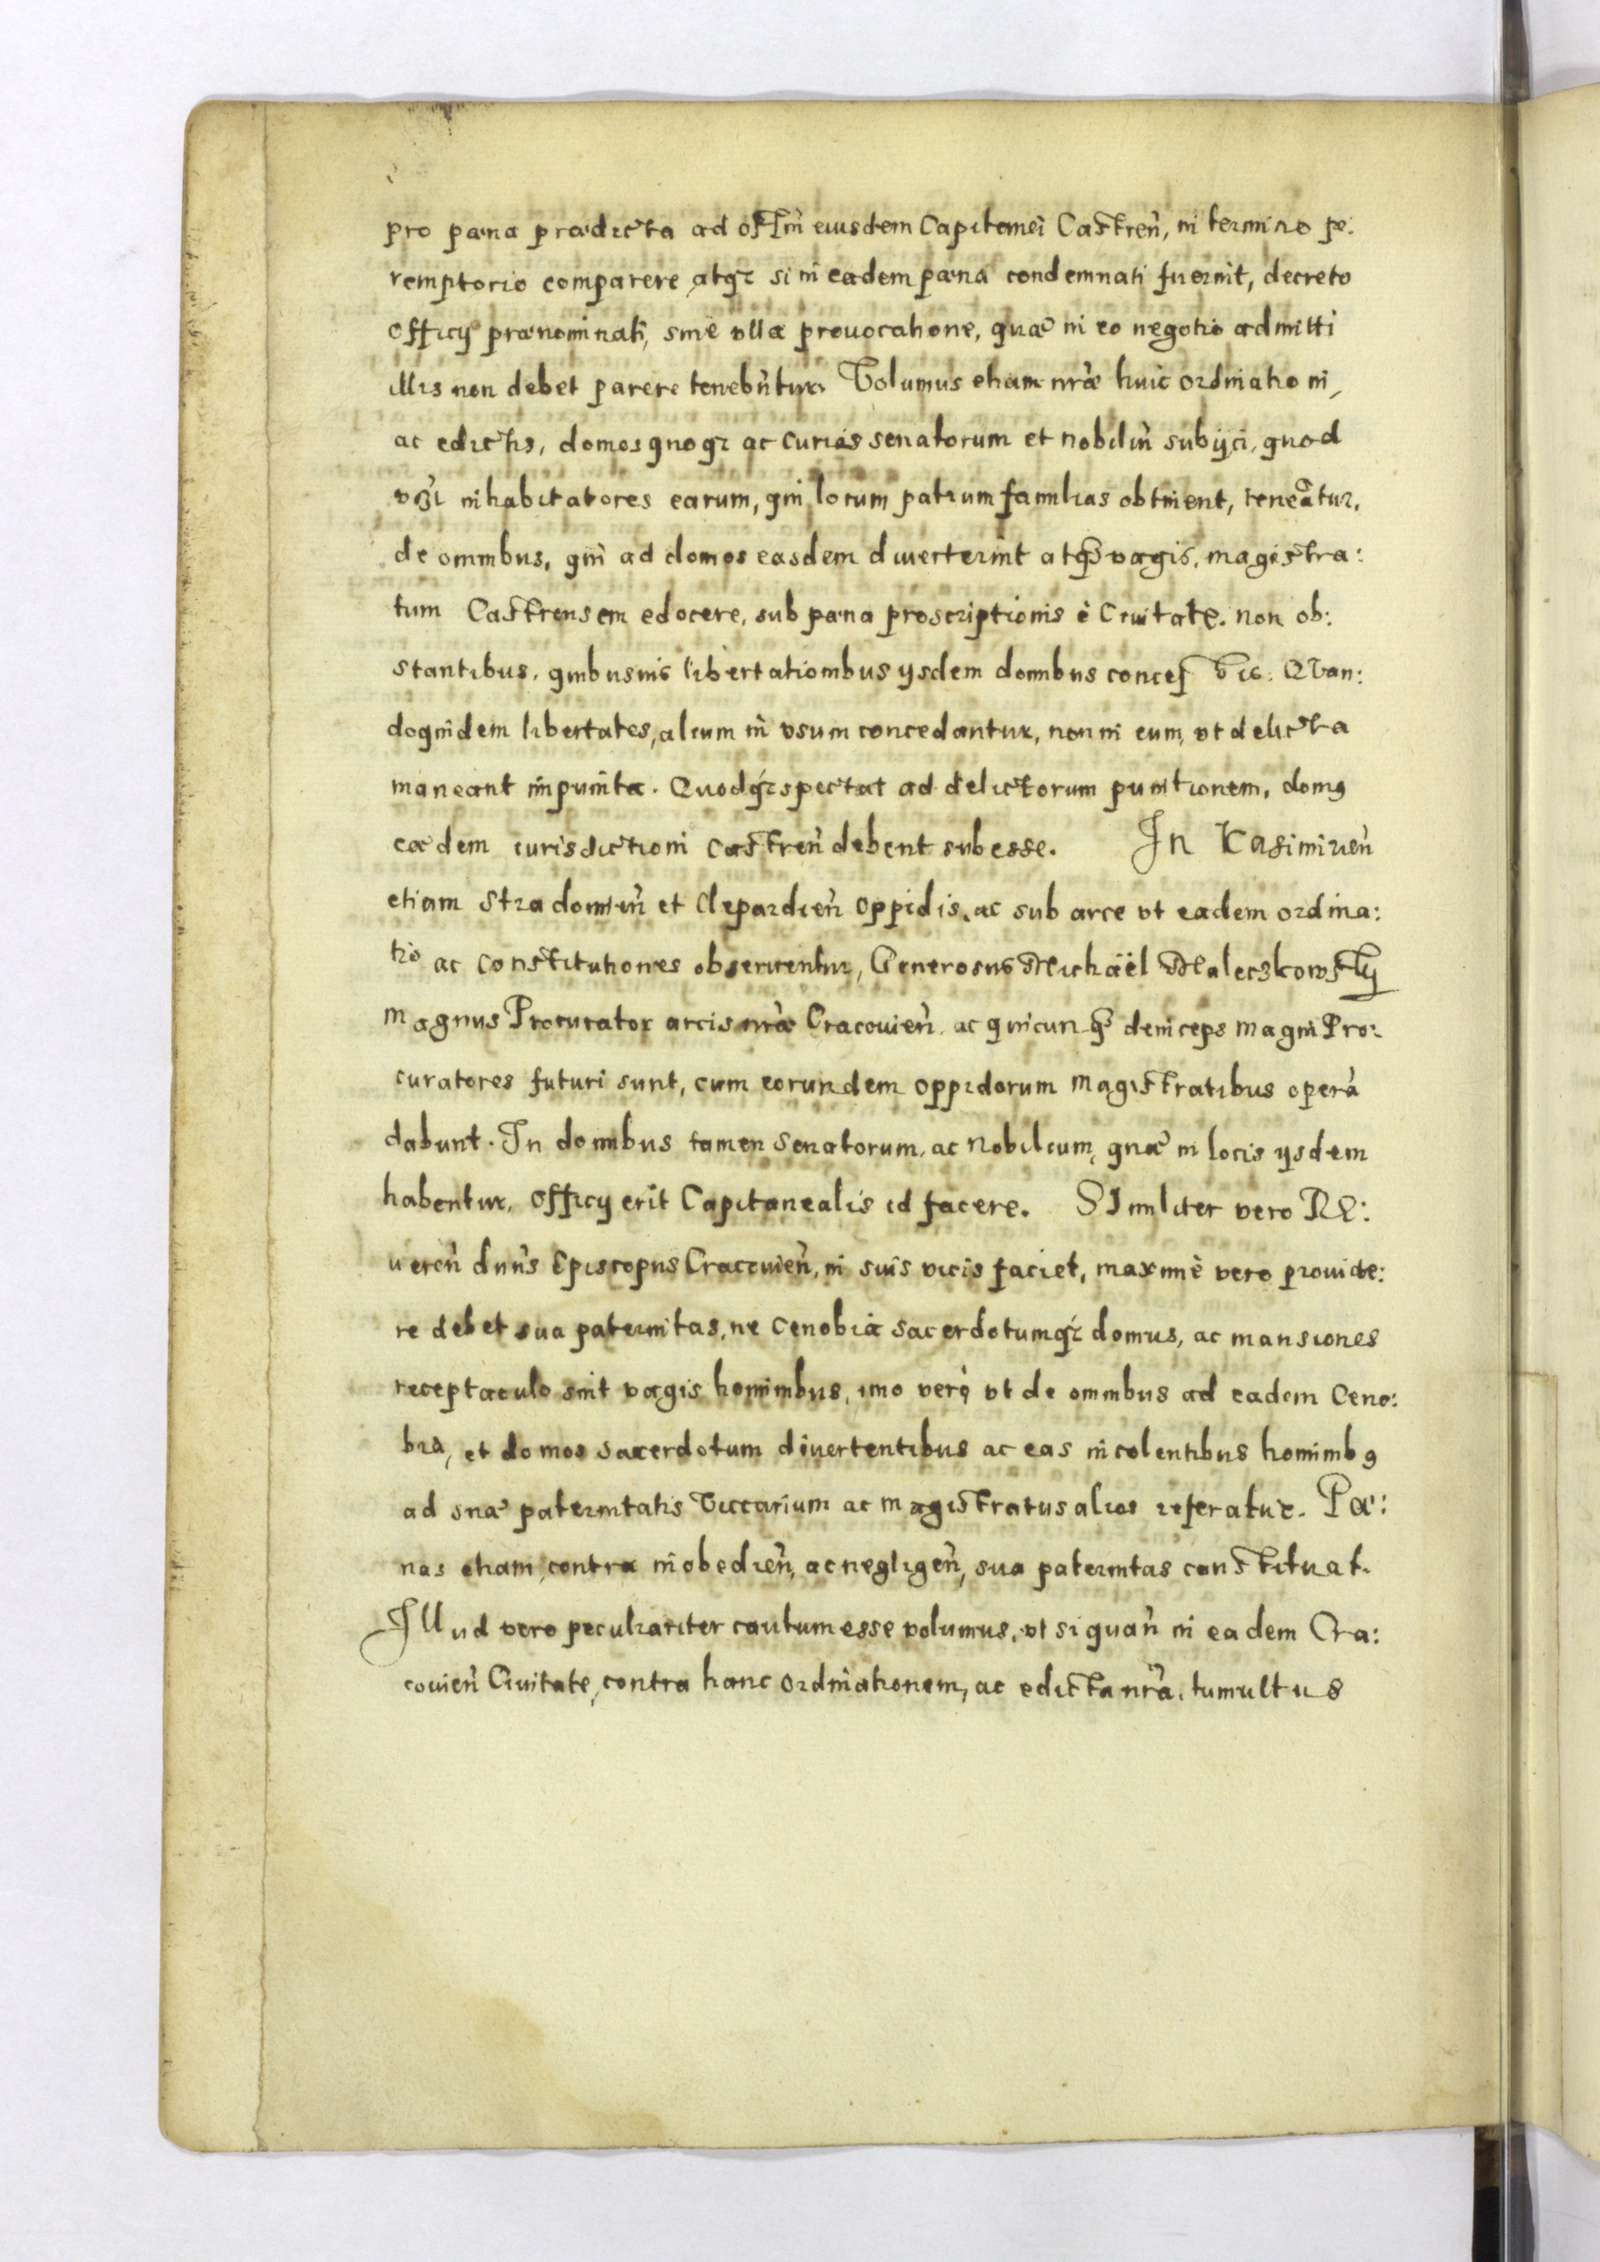 pro pæna prædicta ad offm̃ eiusdem Capitanei Castren̄, in termino pe:
remptorio comparere, atq3 si in eadem pæna condemnati fuerint, decreto
officij prænominati, sine vlla prouocatione, quæ in eo negotio admitti
illis non debet parere tenebũtur. Volumus etiam nr̃æ huic ordinationi,
ac edictis, domos quoq3 ac curias senatorum et nobiliũ subijci, quod
inhabitatores earum, qui locum patrum familias obtinent, teneãtur,
de omnibus, qui ad domos easdem diuerterint atq3 vagis, magistra:
tum Castrensem edocere, sub pæna proscriptionis è Ciuitate. non ob:
stantibus, quibusuis libertationibus ijsdem domibus conces Vic. QVan:
doquidem libertates, alium in vsum concedantur, non in eum, vt delicta
maneant impunita. Quodq3 spectat ad delictorum punitionem, dom9
eædem iurisdictioni castren̄ debent subesse. In Kasimirien̄
etiam stradomien̄ et Clepardien̄ oppidis, ac sub arce vt eadem ordina:
tio ac constitutiones obseruentur, Generosus Michaël Maleczkowsky
magnus Procurator arcis nr̃æ Cracouien̄, ac quicunq3 deinceps magni Pro:
curatores futuri sunt, cum eorundem oppidorum magistratibus operã
dabunt. In domibus tamen senatorum, ac nobilium, quæ in locis ijsdem
habentur, officij erit Capitanealis id facere. SImiliter vero RE:
ueren̄ dnñs Episcopus Cracouien̄, in suis vicis faciet, maximè vero prouide:
re debet sua paternitas, ne cenobia sacerdotumq3 domus, ac mansiones
receptaculo sint vagis hominibus, imo verò vt de omnibus ad eadem Ceno:
bia, et domos sacerdotum diuertentibus ac eas incolentibus hominib9
ad suæ paternitatis Viccarium ac magistratus alios referatur. Pæ:
nas etiam, contra inobedien̄, ac negligen̄, sua paternitas constituat.
Illud vero peculiariter cautum esse volumus, vt si quañ in eadem Cra:
couien̄ Ciuitate, contra hanc ordinationem, ac edicta nr̃a, tumultus